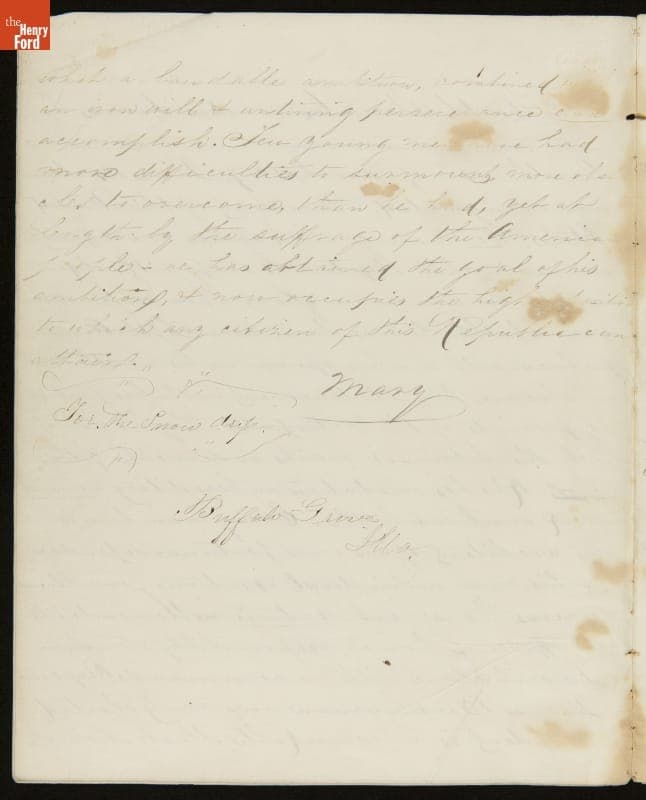 the
Henry
Ford
what a laudable ambition, combined
an iron will & untiring perseverance can
accomplish. Few young men have had
more difficulties to surmount, more obsta
cles to overcome, than he had, yet at
length by the suffrage of the America
people - he has obtained the goal of his
ambition, & now occupies the highest
to which any citizen of this Republic can
attain."
Mary
For. the Snow drop.
Buffalo Grove